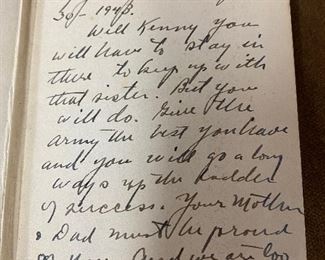 30 - 1943.
Will Kenny you
will have to stay in
there to keep up with
that sister. But you
will do. Give the
army the best you have
and you will go a long
ways up the ladder
of success. Your Mother
& Dad must be proud
of you. And we are too